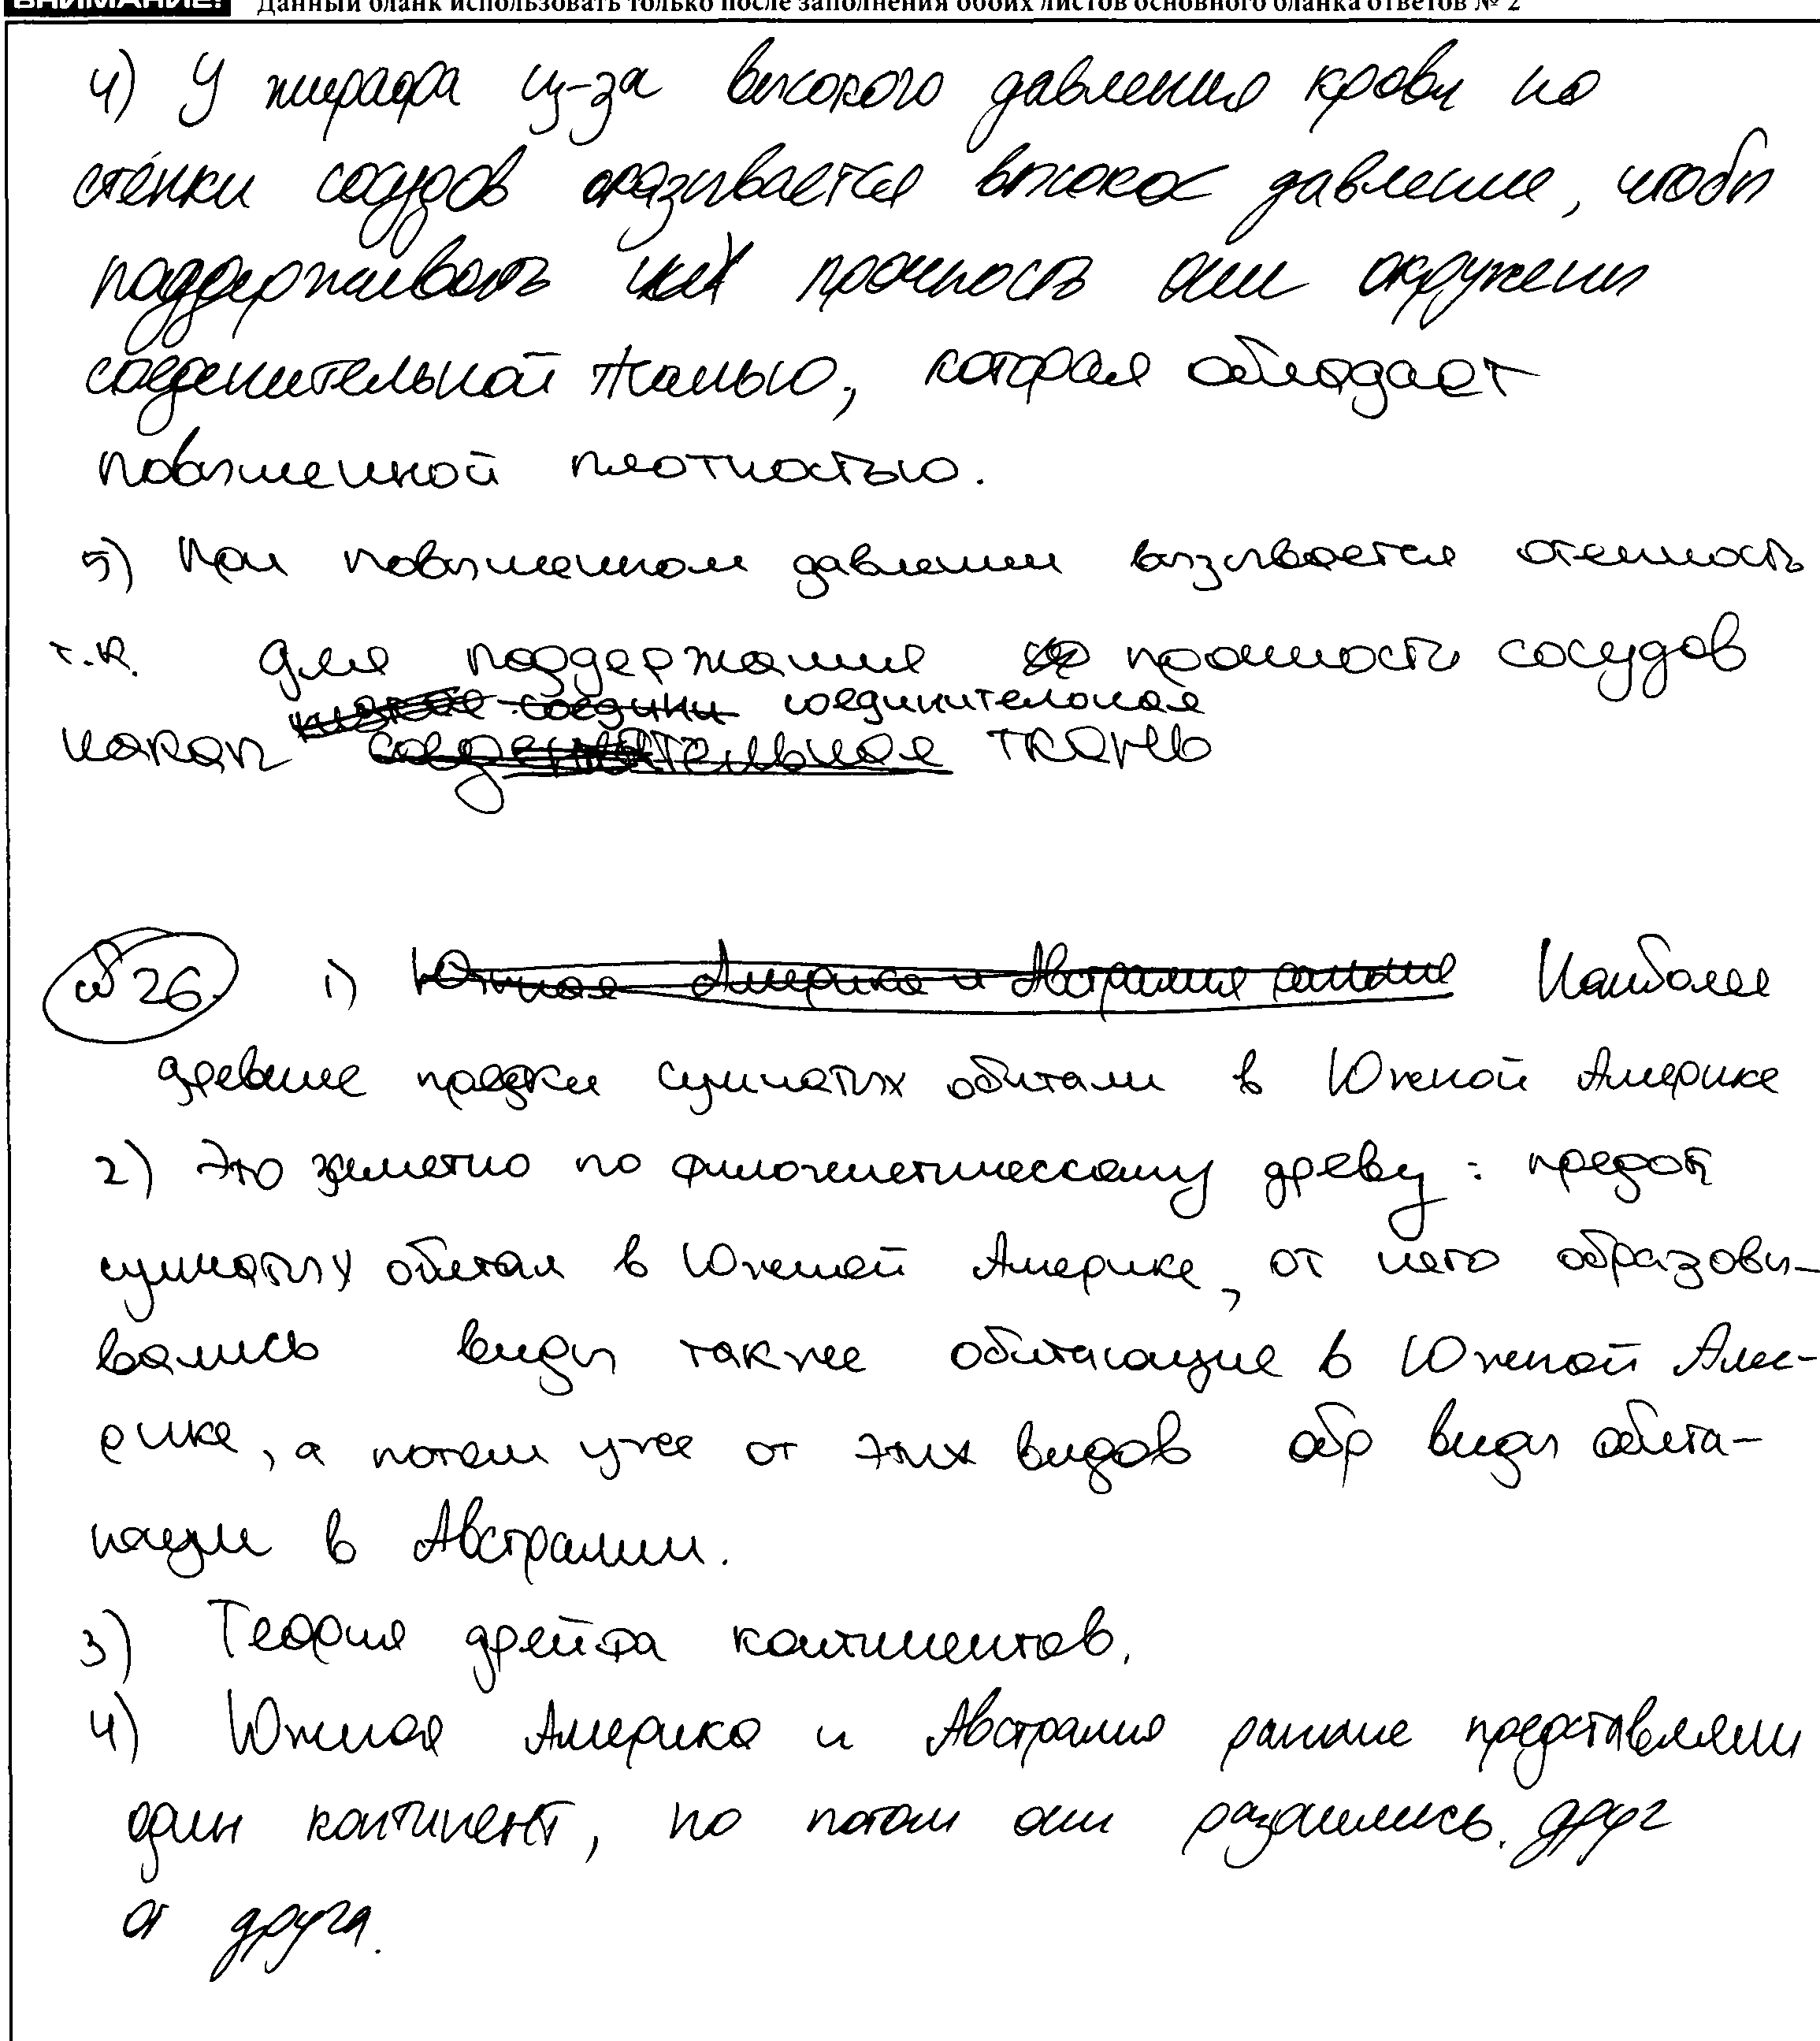 ВНИМАНИЕ! Данный бланк использовать только после заполнения обоих листов основного бланка ответов № 2
4) У жирафа из-за высокого давления крови на
стенки сосудов оказывается высокое давление, чтобы
поддерживать их прочность они окружены
соединительной тканью, которая обладает
повышенной плотностью.
5) При повышенном давлении вызывается отечность
т.к. для поддержания прочности сосудов
соединительная
ткань
№ 26. 1) Южная Америка и Австралия раньше Наиболее
древние предки сумчатых обитали в Южной Америке
2) Это заметно по филогенетическому древу: предок
сумчатых обитал в Южной Америке, от него образовы-
вались виды также обитающие в Южной Аме-
рике, а потом уже от этих видов обр виды обита-
ющие в Австралии.
3) Теория дрейфа континентов.
4) Южная Америка и Австралия раньше представляли
один континент, но потом они разошлись. друг
от друга.